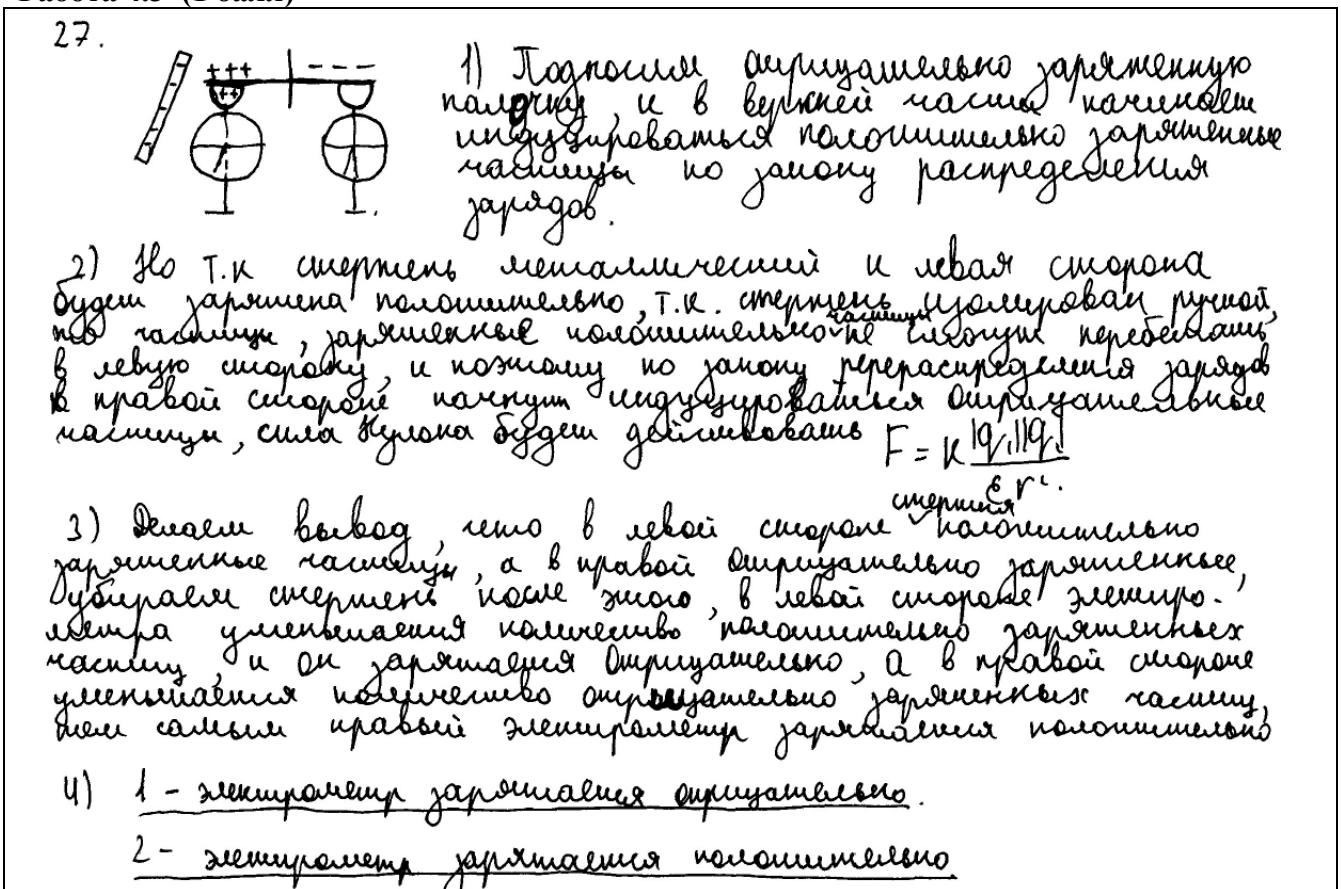 27.
1) Подносим отрицательно заряженную
палочку, и в верхней части начинает
индуцироваться положительно заряженные
частицы по закону распределения
зарядов.
2) Но т.к стержень металлический и левая сторона
будет заряжена положительно, т.к. стержень изолирован ручкой,
то частицы, заряженные положительно частицы не смогут перебежать
в левую сторону, и поэтому по закону перераспределения зарядов
в правой стороне начнут индуцироваться отрицательные
частицы, сила Кулона будет действовать F = k |q₁||q₁| / ε r².
3) Делаем вывод, что в левой стороне стержня положительно
заряженные частицы, а в правой отрицательно заряженные,
убираем стержень после этого, в левой стороне электро-
метра уменьшается количество положительно заряженных
частиц, и он заряжается отрицательно, а в правой стороне
уменьшается количество отрицательно заряженных частиц,
тем самым правый электрометр заряжается положительно
4) 1 - электрометр заряжается отрицательно.
2 - электрометр заряжается положительно